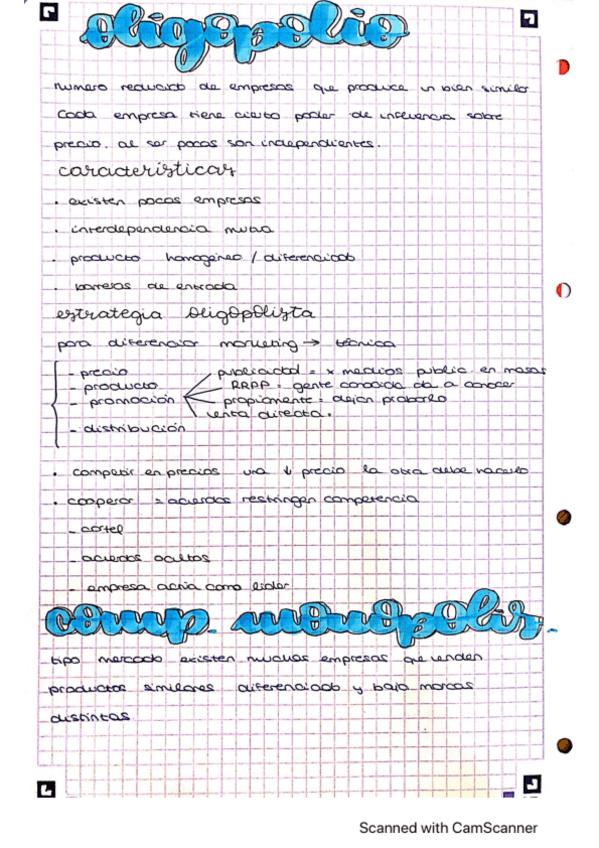 oligopolio
numero reducido de empresas que produce un bien similar
Cada empresa tiene cierto poder de influencia sobre
precio. al ser pocas son independientes.
características
· existen pocas empresas
· interdependencia mutua
· producto homogéneo / diferenciado
· barreras de entrada
estrategia oligopolista
para diferenciar marketing → técnica
- precio
- producto
- promoción
publicidad = x medios public. en masas
RRPP = gente conocida da a conocer
propiamente = dejan probarlo
venta directa.
- distribución
· competir en precios una ↓ precio la otra debe hacerlo
· cooperar = acuerdos restringen competencia
- cartel
- acuerdos ocultos
- empresa actúa como lider
comp. monopolis.
tipo mercado existen muchas empresas que venden
productos similares diferenciado y bajo marcas
distintas
Scanned with CamScanner